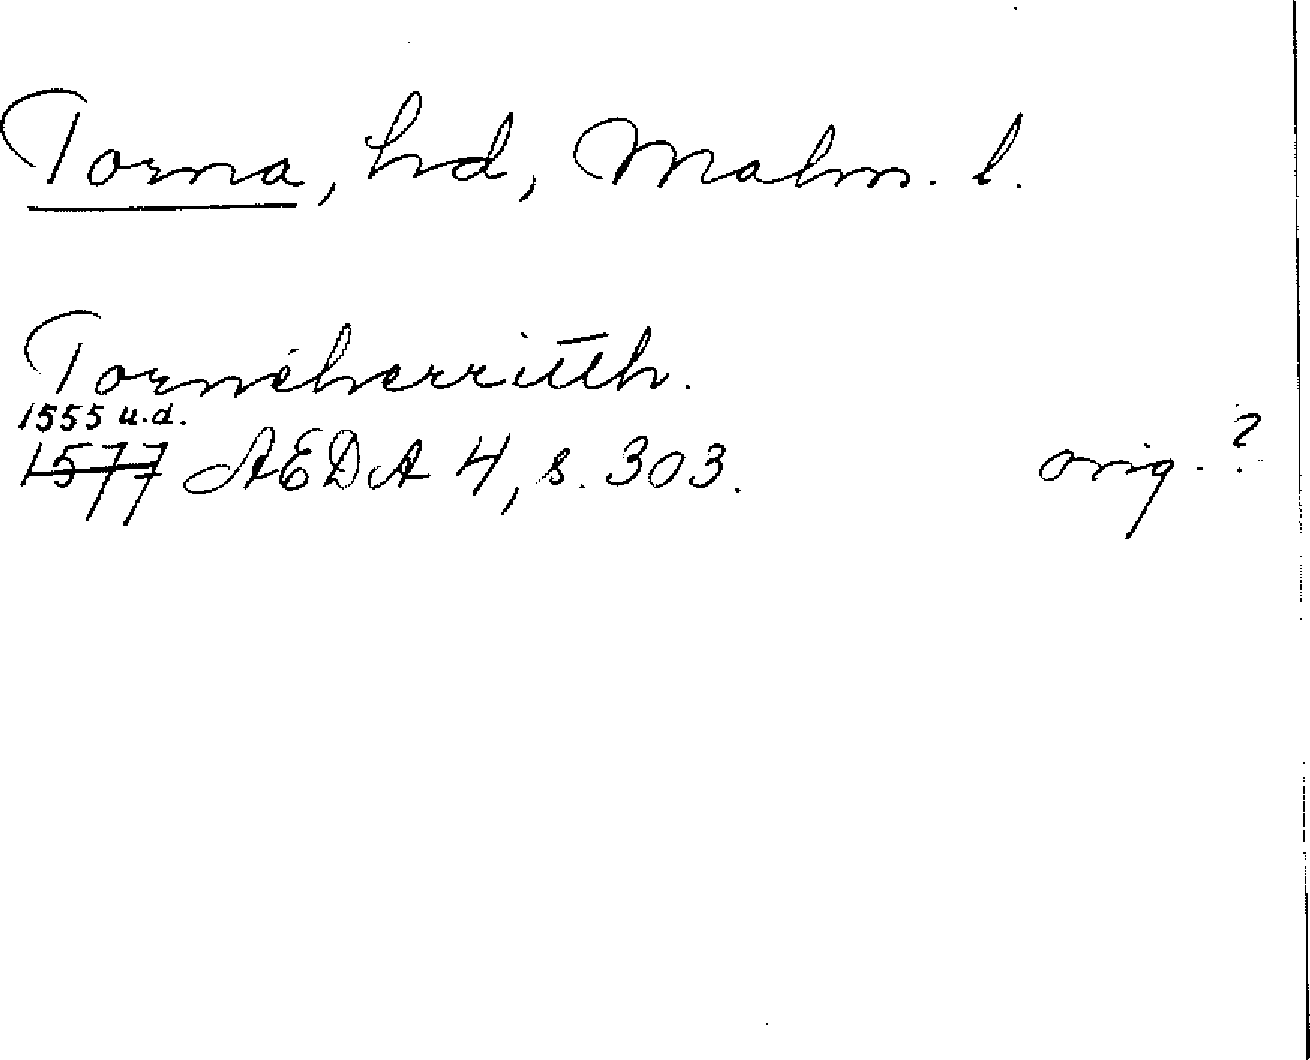 Torna, hd, Malm. l.
Torneherritth.
1555 u.d.
1577 AEDA 4, s. 303. orig. ?